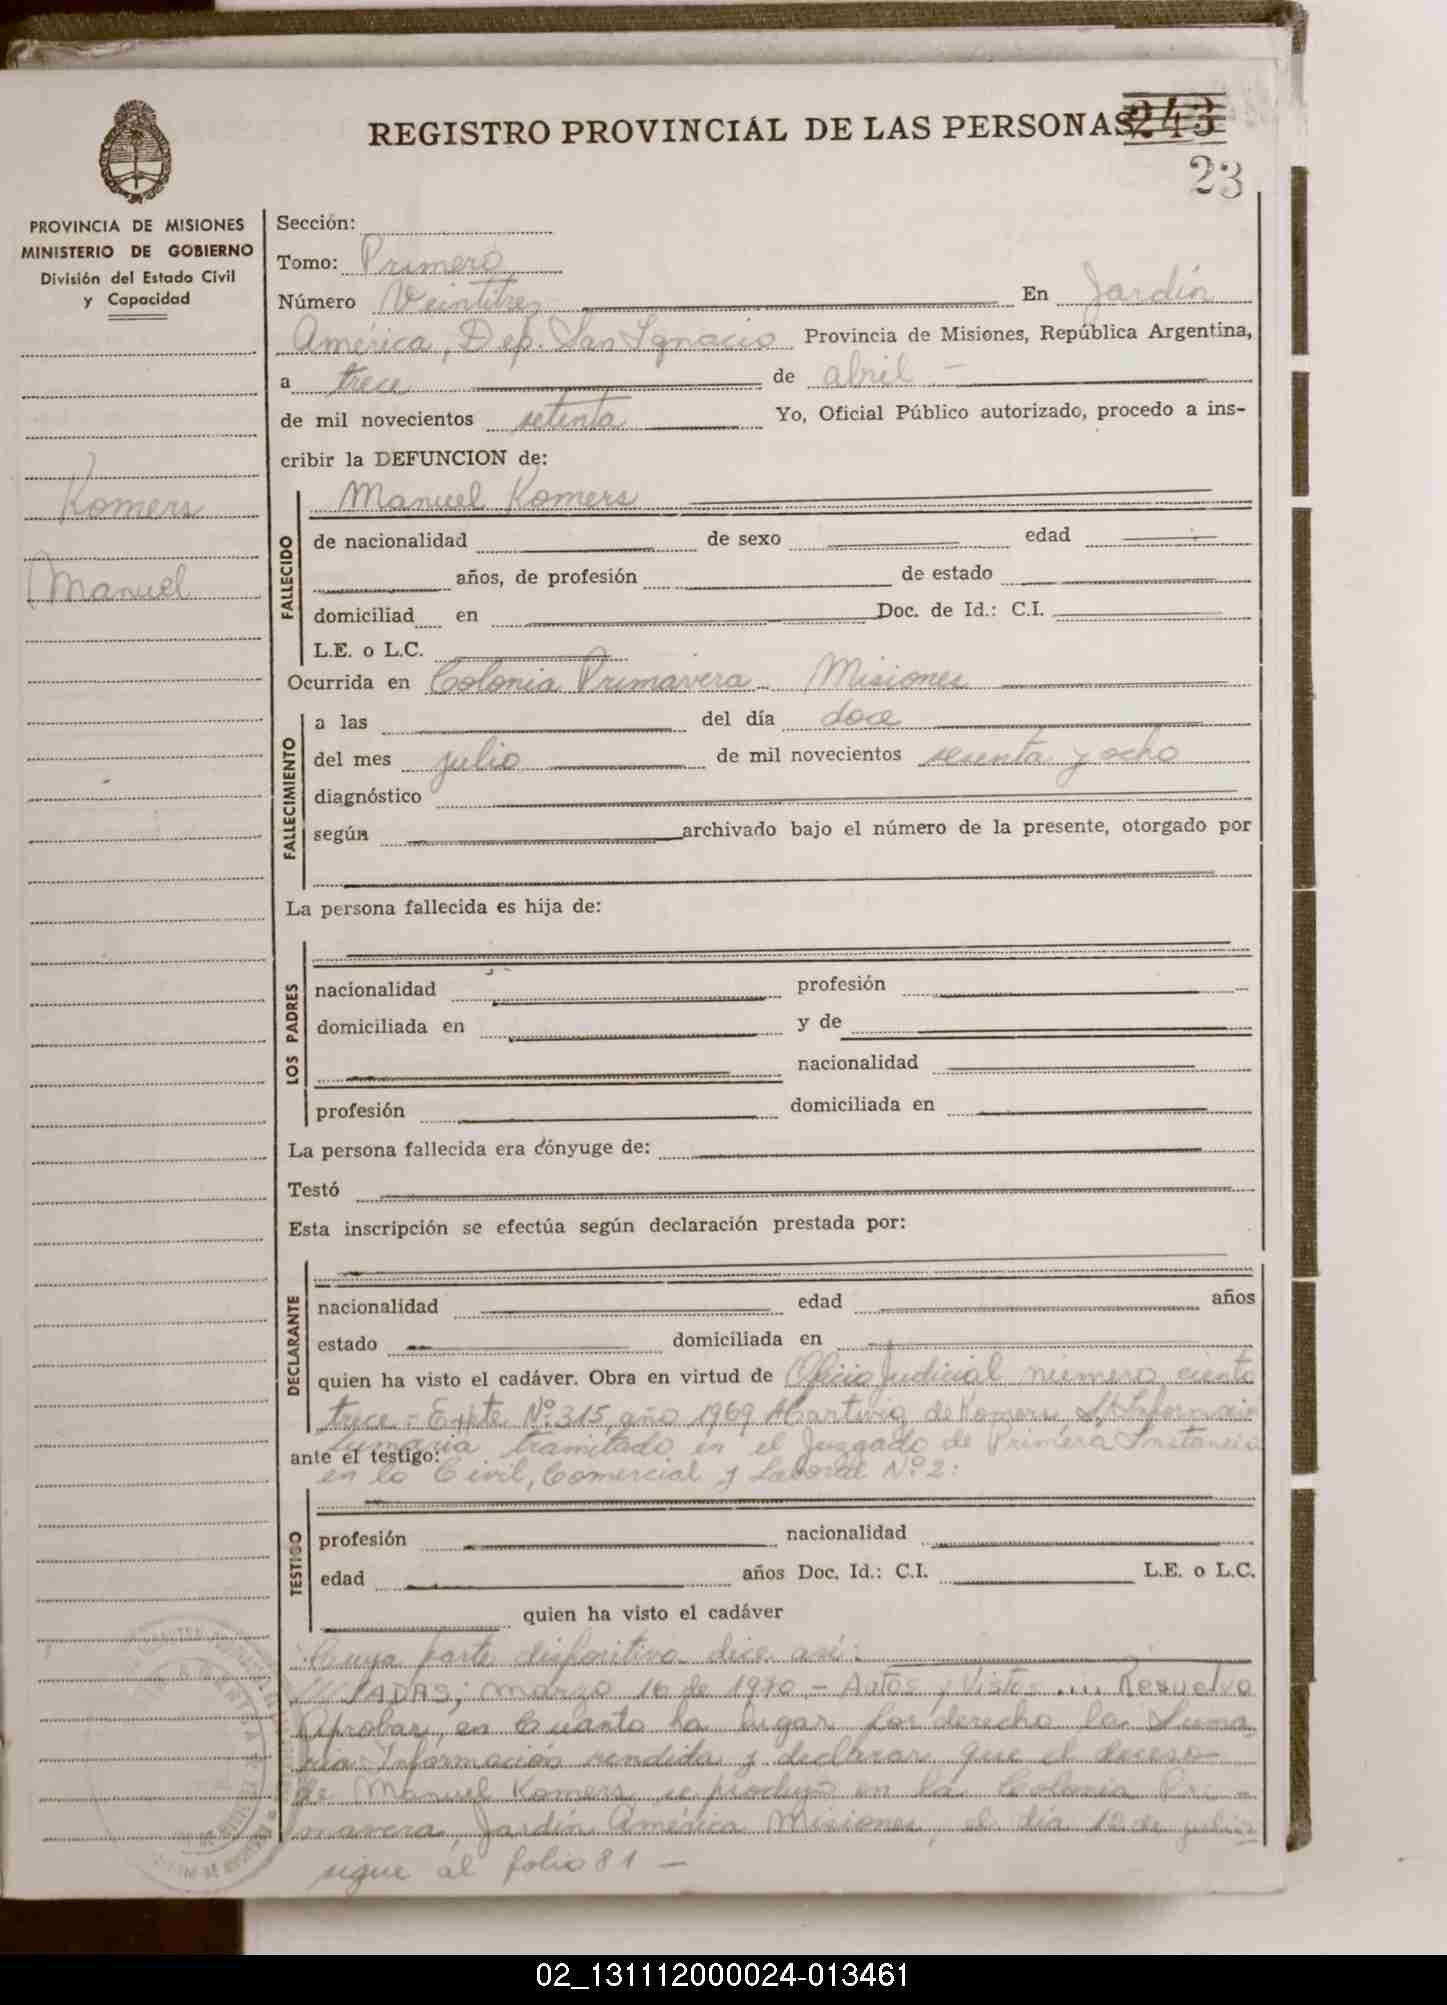 REGISTRO PROVINCIAL DE LAS PERSONAS 243
23
PROVINCIA DE MISIONES
MINISTERIO DE GOBIERNO
División del Estado Civil
y Capacidad
Komers
Manuel
Sección:
Tomo: Primero
Número Veintitres En Jardín
América, Dep. San Ignacio Provincia de Misiones, República Argentina,
a trece de abril -
de mil novecientos setenta Yo, Oficial Público autorizado, procedo a ins-
cribir la DEFUNCION de:
FALLECIDO
Manuel Komers
de nacionalidad de sexo edad
años, de profesión de estado
domiciliad en Doc. de Id.: C.I.
L.E. o L.C.
Ocurrida en Colonia Primavera - Misiones
FALLECIMIENTO
a las del día doce
del mes julio de mil novecientos sesenta y ocho
diagnóstico
según archivado bajo el número de la presente, otorgado por
La persona fallecida es hija de:
LOS PADRES
nacionalidad profesión
domiciliada en y de
nacionalidad
profesión domiciliada en
La persona fallecida era cónyuge de:
Testó
Esta inscripción se efectúa según declaración prestada por:
DECLARANTE
nacionalidad edad años
estado domiciliada en
quien ha visto el cadáver. Obra en virtud de Oficio Judicial número ciento
trece - Expte. Nº 315, año 1969 Hartwig de Komers S/ Informacio
sumaria tramitado en el Juzgado de Primera Instancia
ante el testigo:
en lo Civil, Comercial y Laboral Nº 2:
TESTIGO
profesión nacionalidad
edad años Doc. Id.: C.I. L.E. o L.C.
quien ha visto el cadáver
Cuya parte dispositiva dice así:
SADAS; marzo 16 de 1970 - Autos y Vistos .... Resuelvo
Aprobar, en cuanto ha lugar por derecho la Suma
ria Información rendida y declarar que el deceso
de Manuel Komers se produjo en la Colonia Pri-
mavera, Jardín América Misiones, el día 12 de julio
sigue al folio 81 -
02_131112000024-013461